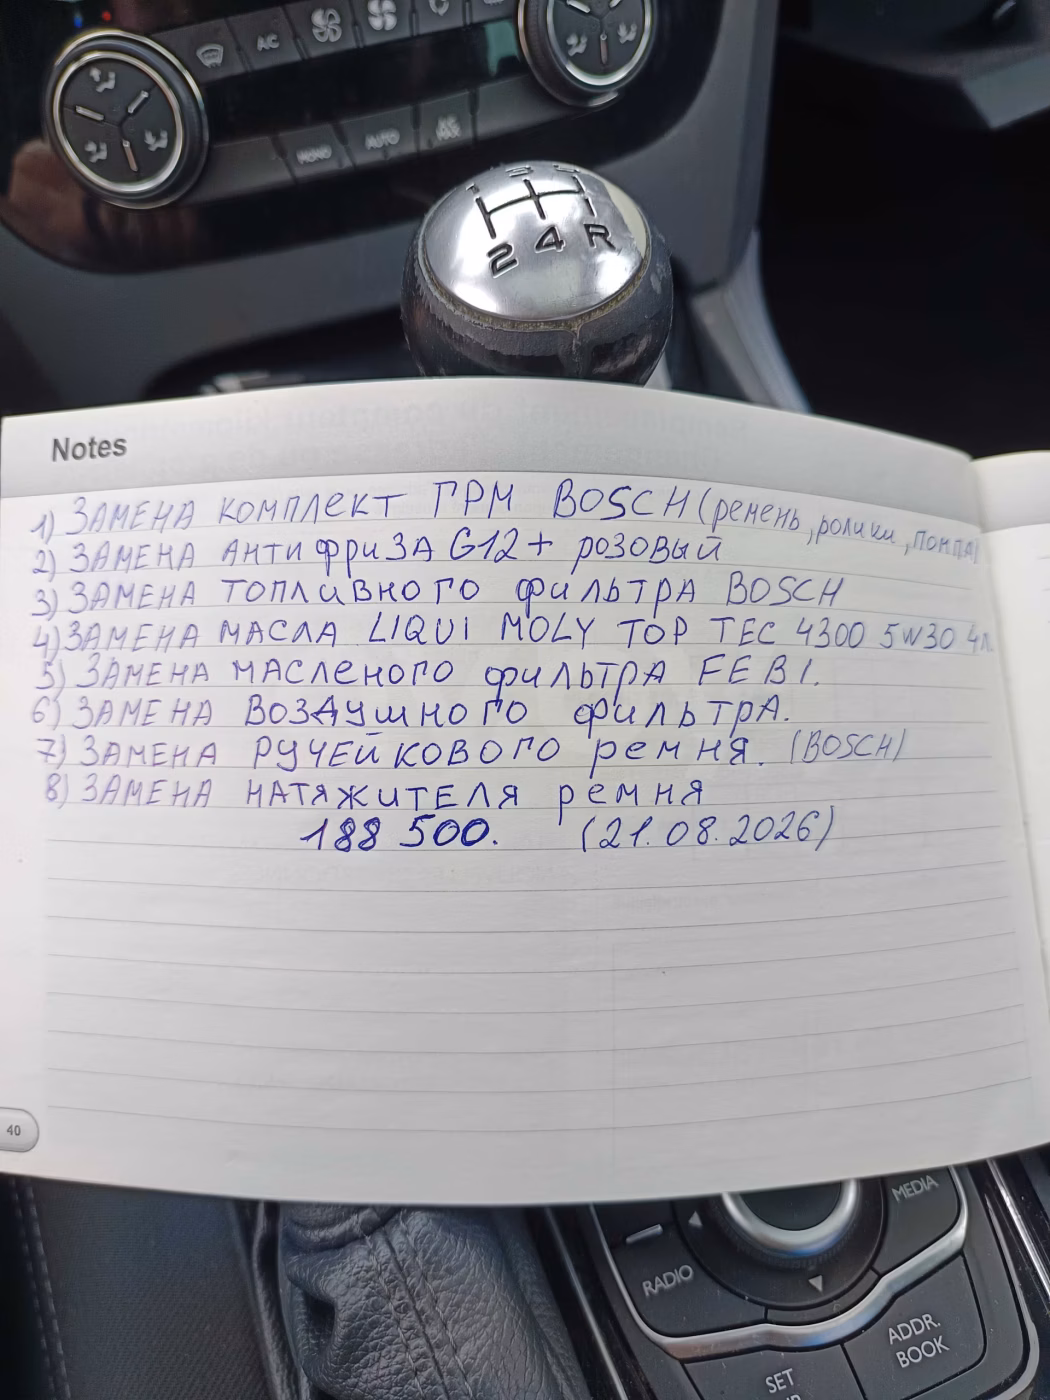 A/C
MONO AUTO
1 3 5
2 4 R
Notes
1) ЗАМЕНА КОМПЛЕКТ ГРМ BOSCH (ремень, ролики, помпа)
2) ЗАМЕНА АНТИФРИЗА G12+ розовый
3) ЗАМЕНА ТОПЛИВНОГО фильтра BOSCH
4) ЗАМЕНА МАСЛА LIQUI MOLY TOP TEC 4300 5W30 4л.
5) ЗАМЕНА МАСЛЕНОГО фильтРА FEBI.
6) ЗАМЕНА ВОЗДУШНОГО фильтРА.
7) ЗАМЕНА РУЧЕЙКОВОГО ремня. (BOSCH)
8) ЗАМЕНА НАТЯЖИТЕЛЯ ремня
188 500. (21.08.2026)
40
MEDIA
RADIO
ADDR.
BOOK
SET